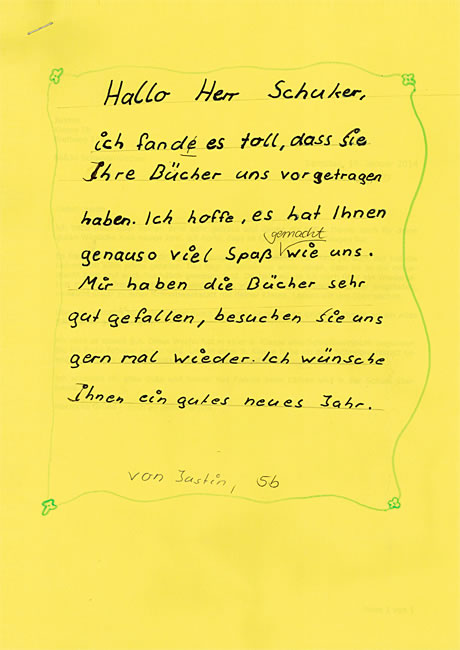 Hallo Herr Schuker,
ich fande es toll, dass Sie
Ihre Bücher uns vorgetragen
haben. Ich hoffe, es hat Ihnen
gemacht
genauso viel Spaß wie uns.
Mir haben die Bücher sehr
gut gefallen, besuchen Sie uns
gern mal wieder. Ich wünsche
Ihnen ein gutes neues Jahr.
von Justin, 5b